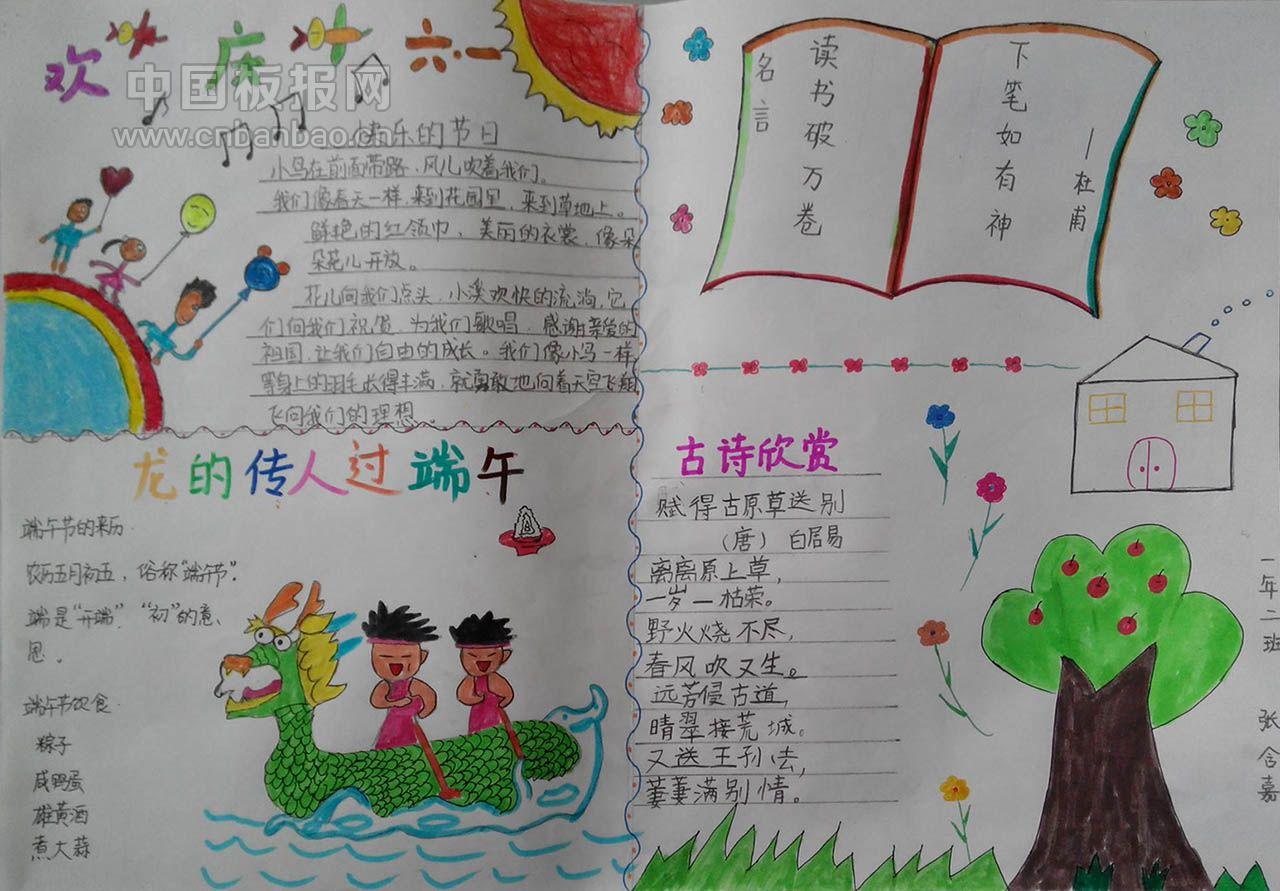 欢庆六一
中国板报网
www.cnbanbao.com
快乐的节日
小鸟在前面带路，风儿吹着我们。
我们像春天一样，来到花园里，来到草地上。
鲜艳的红领巾、美丽的衣裳，像朵
朵花儿开放。
花儿向我们点头，小溪欢快的流淌，它
们向我们祝贺，为我们歌唱，感谢亲爱的
祖国，让我们自由的成长。我们像小鸟一样，
等身上的羽毛长得丰满，就勇敢地向着天空飞翔
飞向我们的理想。
龙的传人过端午
端午节的来历
农历五月初五，俗称“端午节”。
端是“开端”、“初”的意
思。
端午节饮食
粽子
咸鸭蛋
雄黄酒
煮大蒜
名言
读书破万卷
下笔如有神
—杜甫
古诗欣赏
赋得古原草送别
（唐）白居易
离离原上草，
一岁一枯荣。
野火烧不尽，
春风吹又生。
远芳侵古道，
晴翠接荒城。
又送王孙去，
萋萋满别情。
一年二班 张含嘉